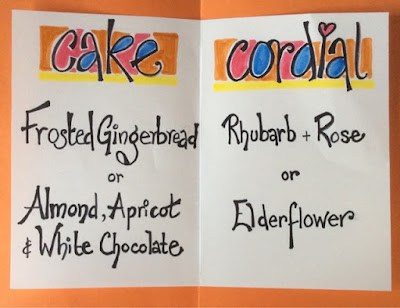 cake
Frosted Gingerbread
or
Almond, Apricot
& White Chocolate
cordial
Rhubarb + Rose
or
Elderflower